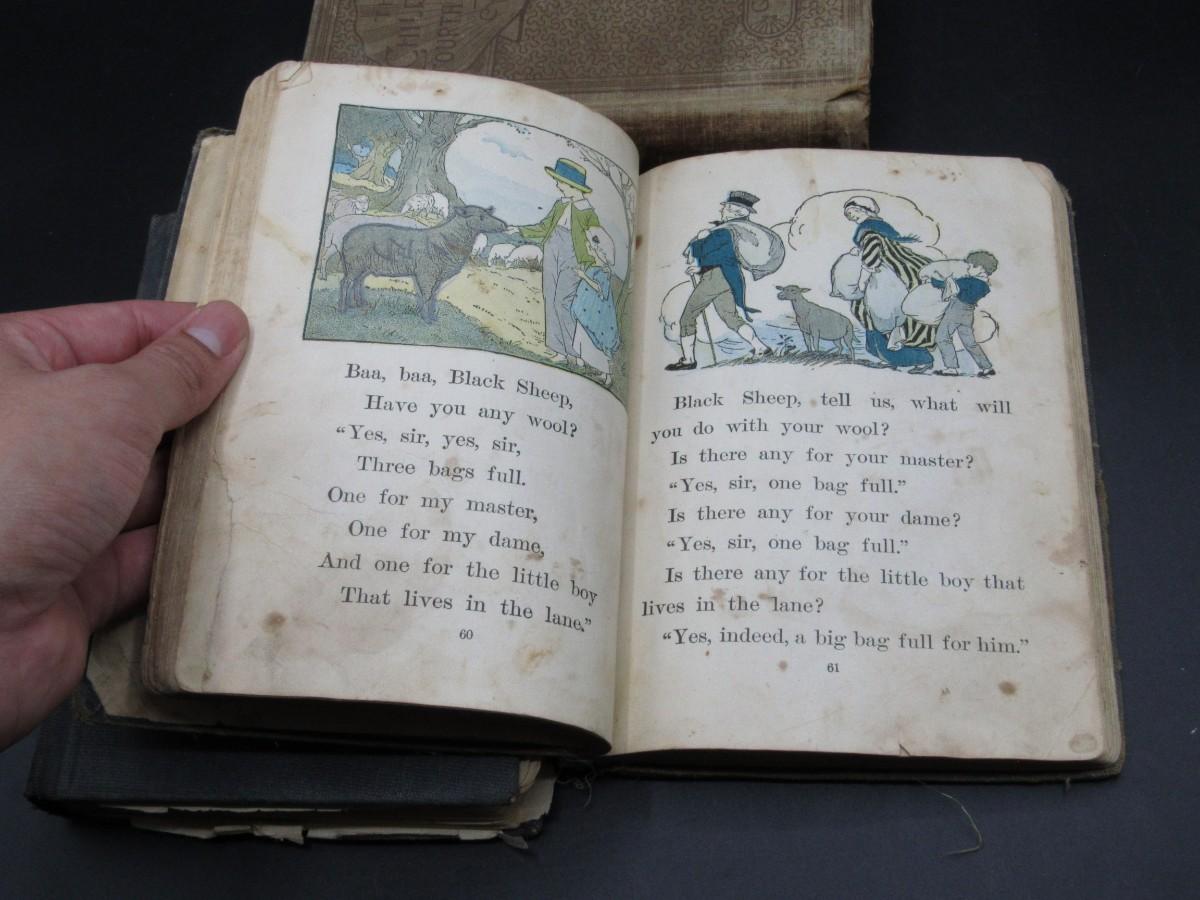 Baa, baa, Black Sheep,
Have you any wool?
“Yes, sir, yes, sir,
Three bags full.
One for my master,
One for my dame,
And one for the little boy
That lives in the lane.”
60
Black Sheep, tell us, what will
you do with your wool?
Is there any for your master?
“Yes, sir, one bag full.”
Is there any for your dame?
“Yes, sir, one bag full.”
Is there any for the little boy that
lives in the lane?
“Yes, indeed, a big bag full for him.”
61